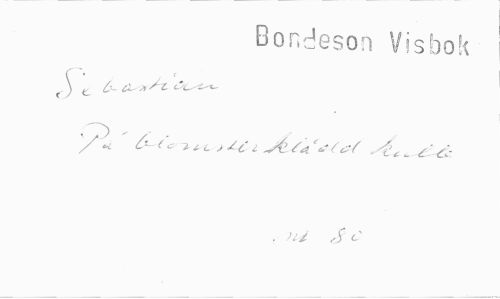 Bondeson Visbok
Sebastian
På blomsterklädd kulle
nr 80